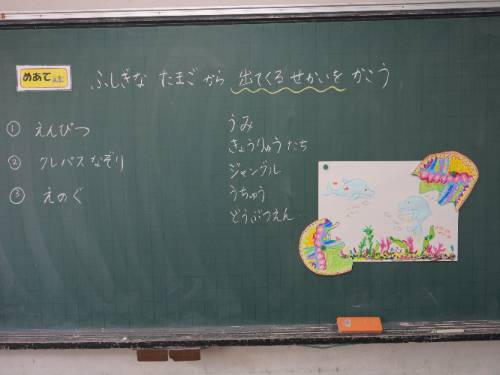 めあて
ふしぎな たまごから 出てくる せかいを かこう
① えんぴつ
② クレパスなぞり
③ えのぐ
うみ
きょうりゅうたち
ジャングル
うちゅう
どうぶつえん